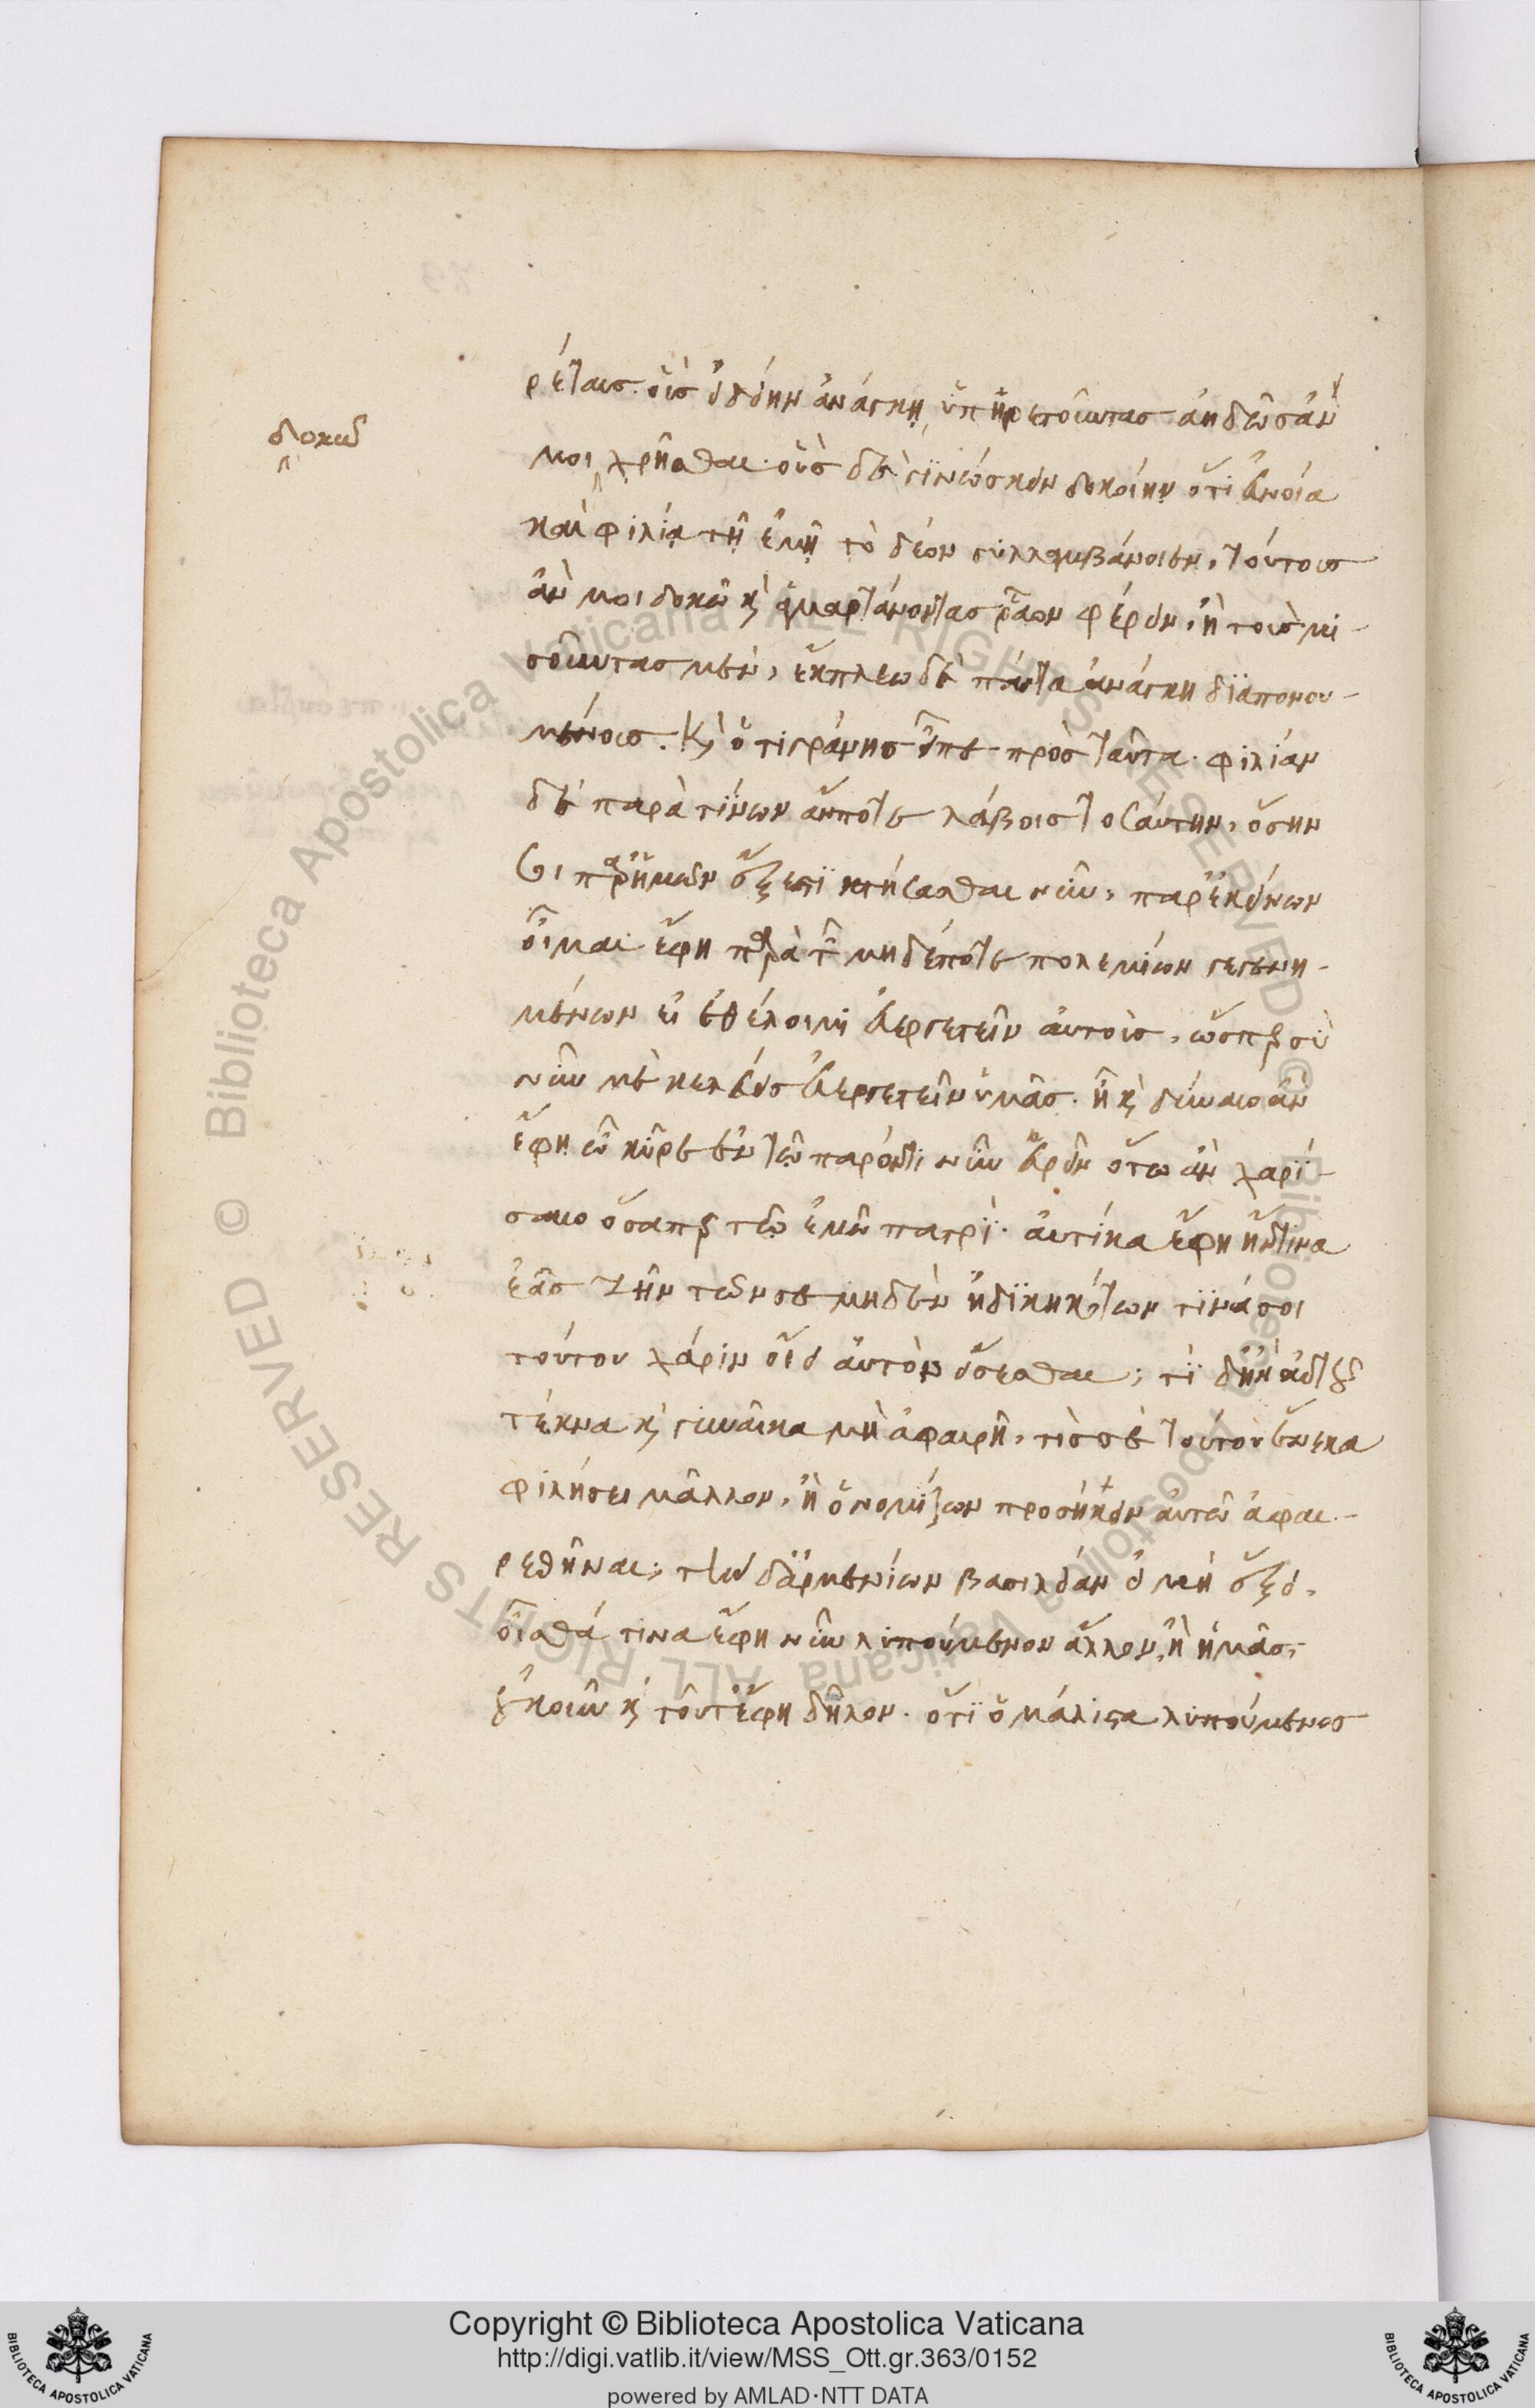 ρέταις. οὓς εἰδείην ἀνάγκῃ ὑπηρετοῦντας ἀηδῶς ἄν
δοκῶ
μοι χρῆσθαι· οὓς δὲ γινώσκειν δοκοίην ὅτι εὐνοίᾳ
καὶ φιλίᾳ τῇ ἐμῇ τὸ δέον συλλαμβάνοιεν, τούτους
ἄν μοι δοκῶ κ̀ ἁμαρτάνοντας ῥᾷον φέρειν, ἢ τοὺς μι-
σοῦντας μὲν, ἔκπλεω δὲ πάντα ἀνάγκῃ διαπονου-
μένους. κ̀ ὁ τιγράνης εἶπε πρὸς ταῦτα. φιλίαν
δὲ παρὰ τίνων ἄν ποτε λάβοις τοσαύτην, ὅσην
σοι παρ' ἡμῶν ἔξεστι κτήσασθαι νῦν, παρ' ἐκείνων
οἶμαι ἔφη παρὰ τῶν μηδέποτε πολεμίων γεγενη-
μένων εἰ ἐθέλοιμι εὐεργετεῖν αὐτοὺς, ὥσπερ σὺ
νῦν με κελεύεις εὐεργετεῖν ὑμᾶς. ἦ κ̀ δύναιο ἂν
ἔφη ὦ κῦρε ἐν τῷ παρόντι νῦν εὑρεῖν ὅτῳ ἂν χαρί-
σαιο ὅσαπερ τῷ ἐμῷ πατρί. αὐτίκα ἔφη ἤν τινα
ἐᾷς ζῆν τῶν σε μηδὲν ἠδικηκότων τίνα σοι
τούτου χάριν οἴει αὐτὸν εἴσεσθαι; τί δ' ἢν αὐτοῦ
τέκνα κ̀ γυναῖκα μὴ ἀφαιρῇ, τίς σε τούτου ἕνεκα
φιλήσει μᾶλλον, ἢ ὁ νομίζων προσήκειν αὐτῷ ἀφαι-
ρεθῆναι; τὴν δ' ἀρμενίων βασιλείαν εἰ μὴ ἕξει,
οἶσθά τινα ἔφη νῦν λυπούμενον ἄλλον, ἢ ἡμᾶς;
οὐκοῦν κ̀ τοῦτ' ἔφη δῆλον. ὅτι ὁ μάλιστα λυπούμενος
Copyright © Biblioteca Apostolica Vaticana
http://digi.vatlib.it/view/MSS_Ott.gr.363/0152
powered by AMLAD·NTT DATA